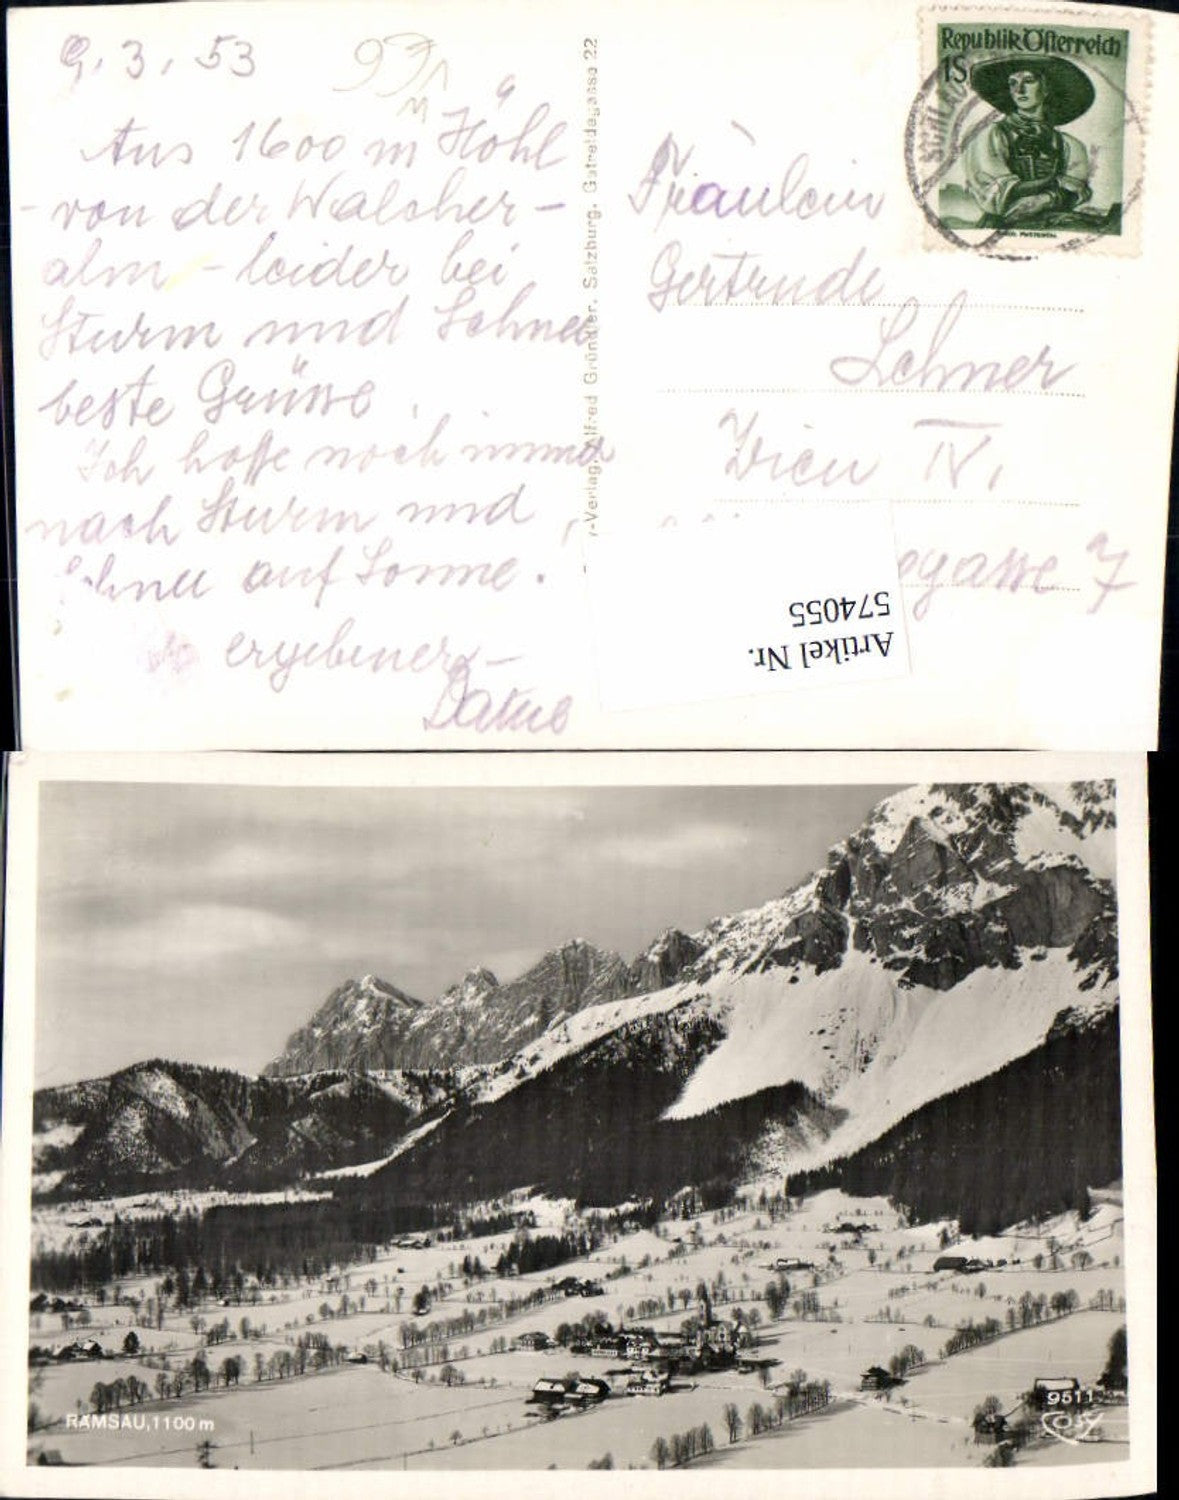 9. 3. 53
Aus 1600 m Höhe
von der Walcher-
alm - leider bei
Sturm und Schnee
beste Grüsse.
Ich hoffe noch immer
nach Sturm und
Schnee auf Sonne.
ergebener
Republik Österreich
1S
Fräulein
Gertrude
Lehner
Wien IV,
gasse 7
-Verlag, Alfred Gründler, Salzburg, Getreidegasse 22
Artikel Nr.
574055
RAMSAU, 1100 m
9511
COSY